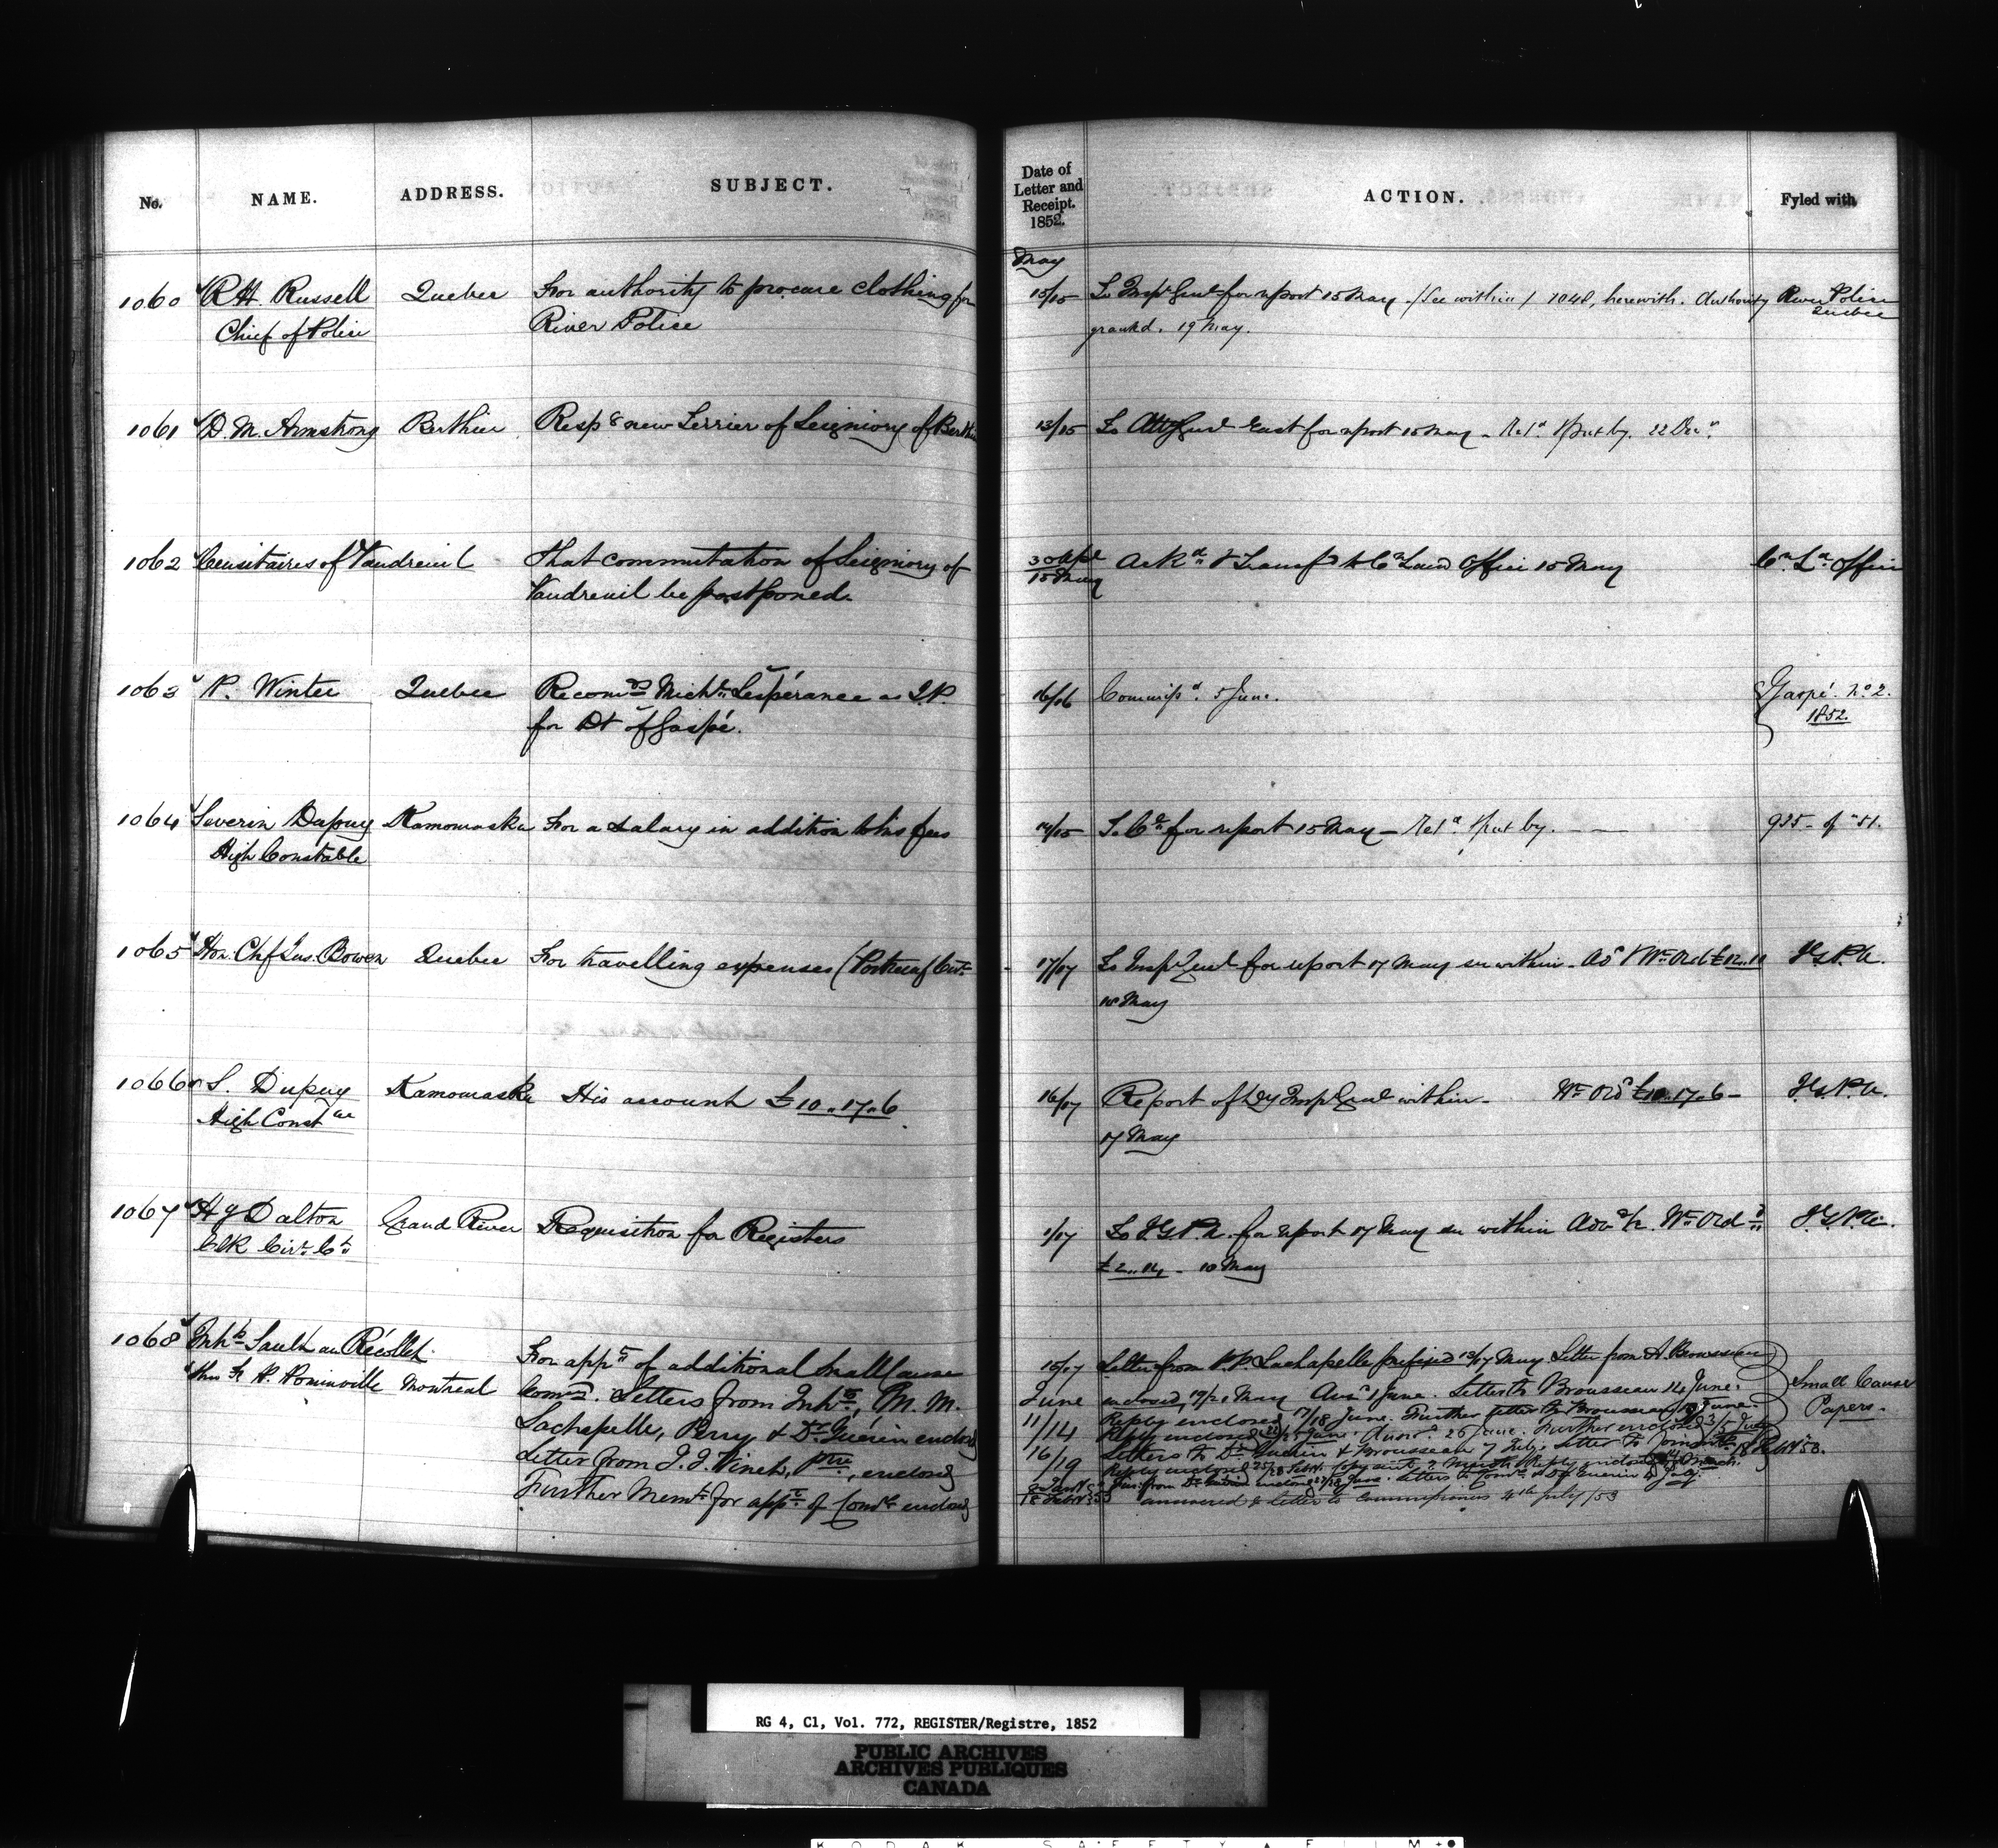 No. NAME. ADDRESS. SUBJECT.
1060 R H. Russell Quebec For authority to procure clothing for
Chief of Police River Police
1061 D. M. Armstrong Berthier Resp g new Terrier of Seigniory of Berthier
1062 Censitaires of Vaudreuil That commutation of Seigniory of
Vaudreuil be postponed.
1063 P. Winter Quebec Recomds Michl Lespérance as J.P.
for Dt of Gaspé.
1064 Severin Dupuy Kamouraska For a salary in addition to his fees
High Constable
1065 Hon. Chf Jus. Bowen Quebec For travelling expenses (Portneuf Cirt
1066 S. Dupuy Kamouraska His account £10..17..6.
High Constble
1067 H J Dalton Grand River Requisition for Registers
Clk Cirt Ct
1068 Inhts Sault au Récollet
thro Fr P. Pominville Montreal For appt of additional Small Cause
Comrs. Letters from Inhts, M. M.
Lachapelle, Perry & Dr. Guérin enclosed
Letter from J. J. Vinet, Ptre, enclosed
Further Memt for appt of Comrs enclosed
Date of
Letter and
Receipt.
1852.
ACTION. Fyled with
May
15/15 To Insp Genl for report 15 May. /See within/ 1048, herewith. Authority River Police
granted. 19 May. Quebec
13/15 To Atty Genl East for report 15 May - Retd & put by. 22 Decr.
30 Apl
15 May Ackd & Transfd to Cn Land Office 15 May Cn Ld Office
16/16 Commissd. 5 June. Gaspé. No 2.
1852.
14/15 To Co for report 15 May - Retd & put by. 935 - of "51.
17/17 To Insp Genl for report 17 May see within - Ad & Wt Ord £12..11 I.G.P.A.
18 May
16/17 Report of Dy Insp Genl within - Wt Ord £10..17..6 - I.G.P.A.
17 May
1/17 To I G P. A. for report 17 May see within Wt Ord I.G.P.A.
£2.. - 18 May
15/17 Letter from P. P. Lachapelle prefixed 13/17 May Letter from A. Brousseau
June enclosed, 19/21 May Ansd 1 June. Letter to Brousseau 14 June. Small Cause
11/14 Reply enclosed 17/18 June. Further letter to Brousseau June. Papers.
Reply enclosed June. Ansd. 26 June. Further enclosed 3/5 July
16/19 Letters to Dr Guérin & Brousseau 7 July.
answered & letter to Commissioners 4th July /53
RG 4, C1, Vol. 772, REGISTER/Registre, 1852
PUBLIC ARCHIVES
ARCHIVES PUBLIQUES
CANADA
KODAK SAFETY FILM